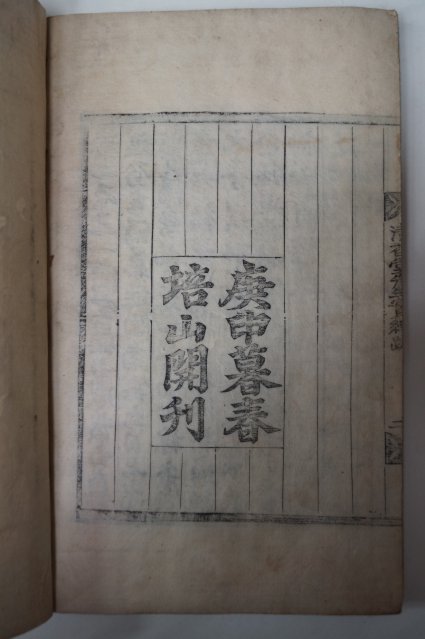 庚申暮春
培山開刊